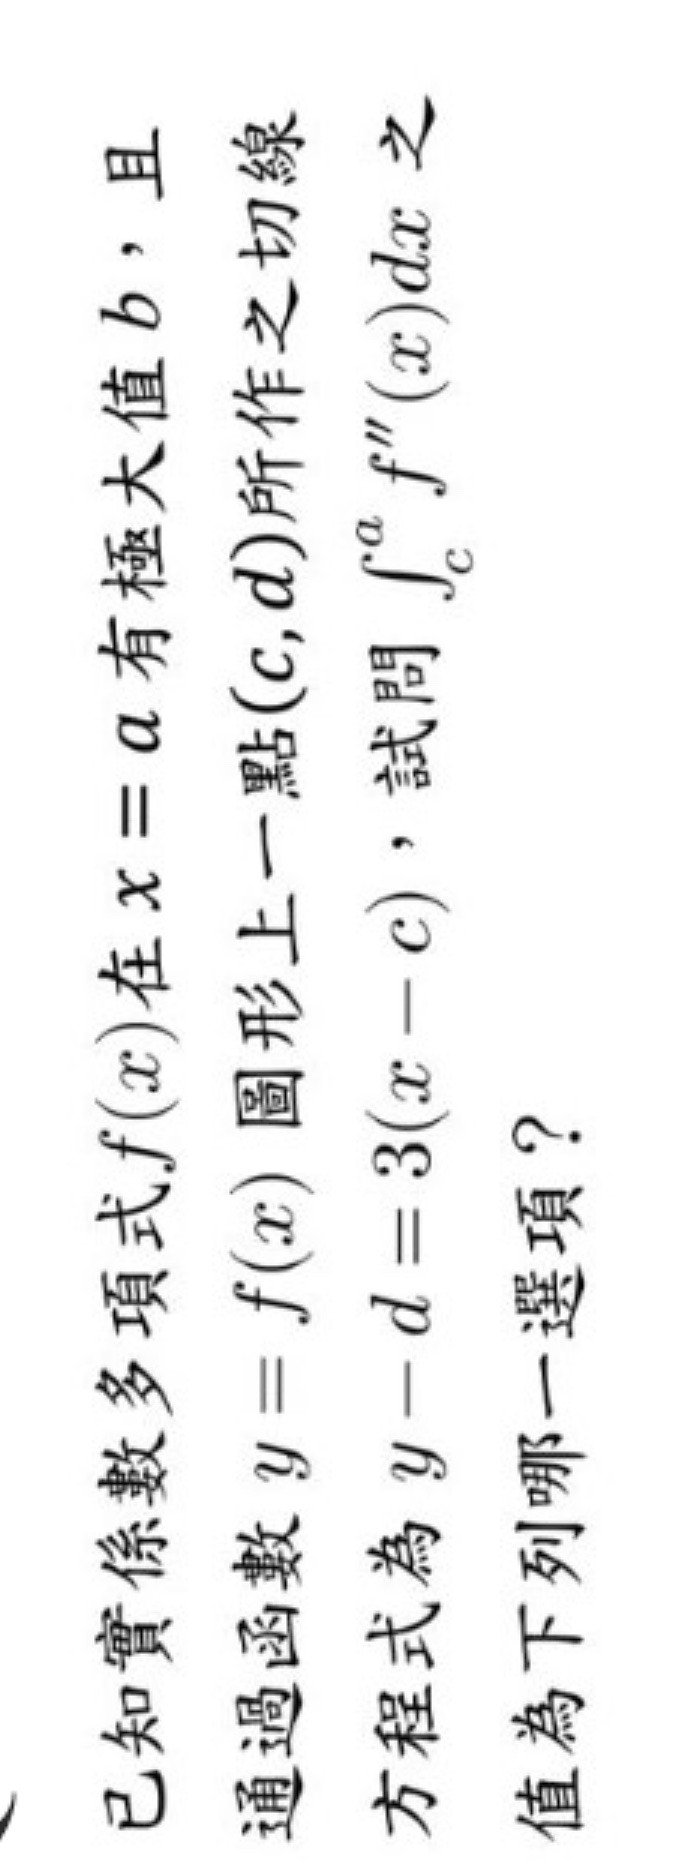 已知實係數多項式f(x)在 x = a 有極大值 b，且
通過函數 y = f(x) 圖形上一點(c, d)所作之切線
方程式為 y − d = 3(x − c)，試問 ∫_c^a f″(x)dx 之
值為下列哪一選項？